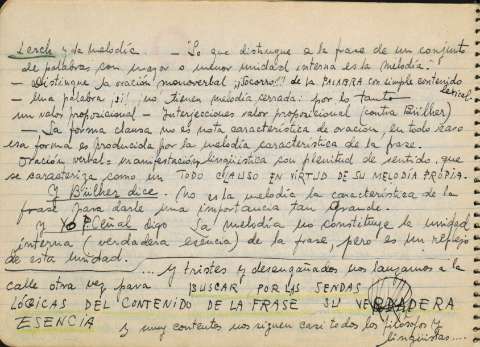 Lerch y la melodía — "Lo que distingue a la frase de un conjunto
de palabras con mayor o menor unidad interna es la melodía."
— Distingue la oración monoverbal ¡¡Socorro!! de la PALABRA con simple contenido
lexical
— Una palabra ¡sí! no tienen melodía cerrada: por lo tanto
un valor proposicional — Interjecciones valor proposicional (contra Bülher)
— La forma clausa no es nota característica de oración, en todo caso
esa forma es producida por la melodía característica de la frase.
Oración verbal = manifestación lingüística con plenitud de sentido, que
se caracteriza como un TODO CLAUSO EN VIRTUD DE SU MELODÍA PROPIA.
Y Bülher dice. (No es la melodía la característica de la
frase para darle una importancia tan grande.
Y YO P. Ceñal digo La melodía no constituye la unidad
interna (verdadera esencia) de la frase, pero es un reflejo
de esta unidad. ... y tristes y desengañados nos lanzamos a la
calle otra vez para BUSCAR POR LAS SENDAS
LÓGICAS DEL CONTENIDO DE LA FRASE SU VERDADERA
ESENCIA
Y muy contentos nos siguen casi todos los filósofos y
lingüistas....